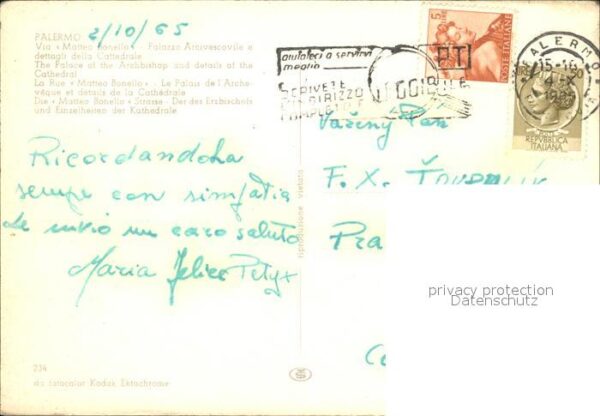 2/10/65
PALERMO
Via «Matteo Bonello» - Palazzo Arcivescovile e
dettagli della Cattedrale
The Palace of the Archbishop and details of the
Cathedral
La Rue «Matteo Bonello» - Le Palais de l'Arche-
vêque et détails de la Cathédrale
Die «Matteo Bonello» Strasse - Der des Erzbischofs
und Einzelheiten der Kathedrale
aiutateci a servirvi
meglio
SCRIVETE
INDIRIZZO
LEGGIBILE
PT
5 LIRE
POSTE ITALIANE
PALERMO
15-16
REPVBBLICA
ITALIANA
Vážený Pan
F. X.
Pra
Ricordandola
sempre con simpatia
Le invio un caro saluto
Maria Felice
riproduzione vietata
privacy protection
Datenschutz
236
da fotocolor Kodak Ektachrome